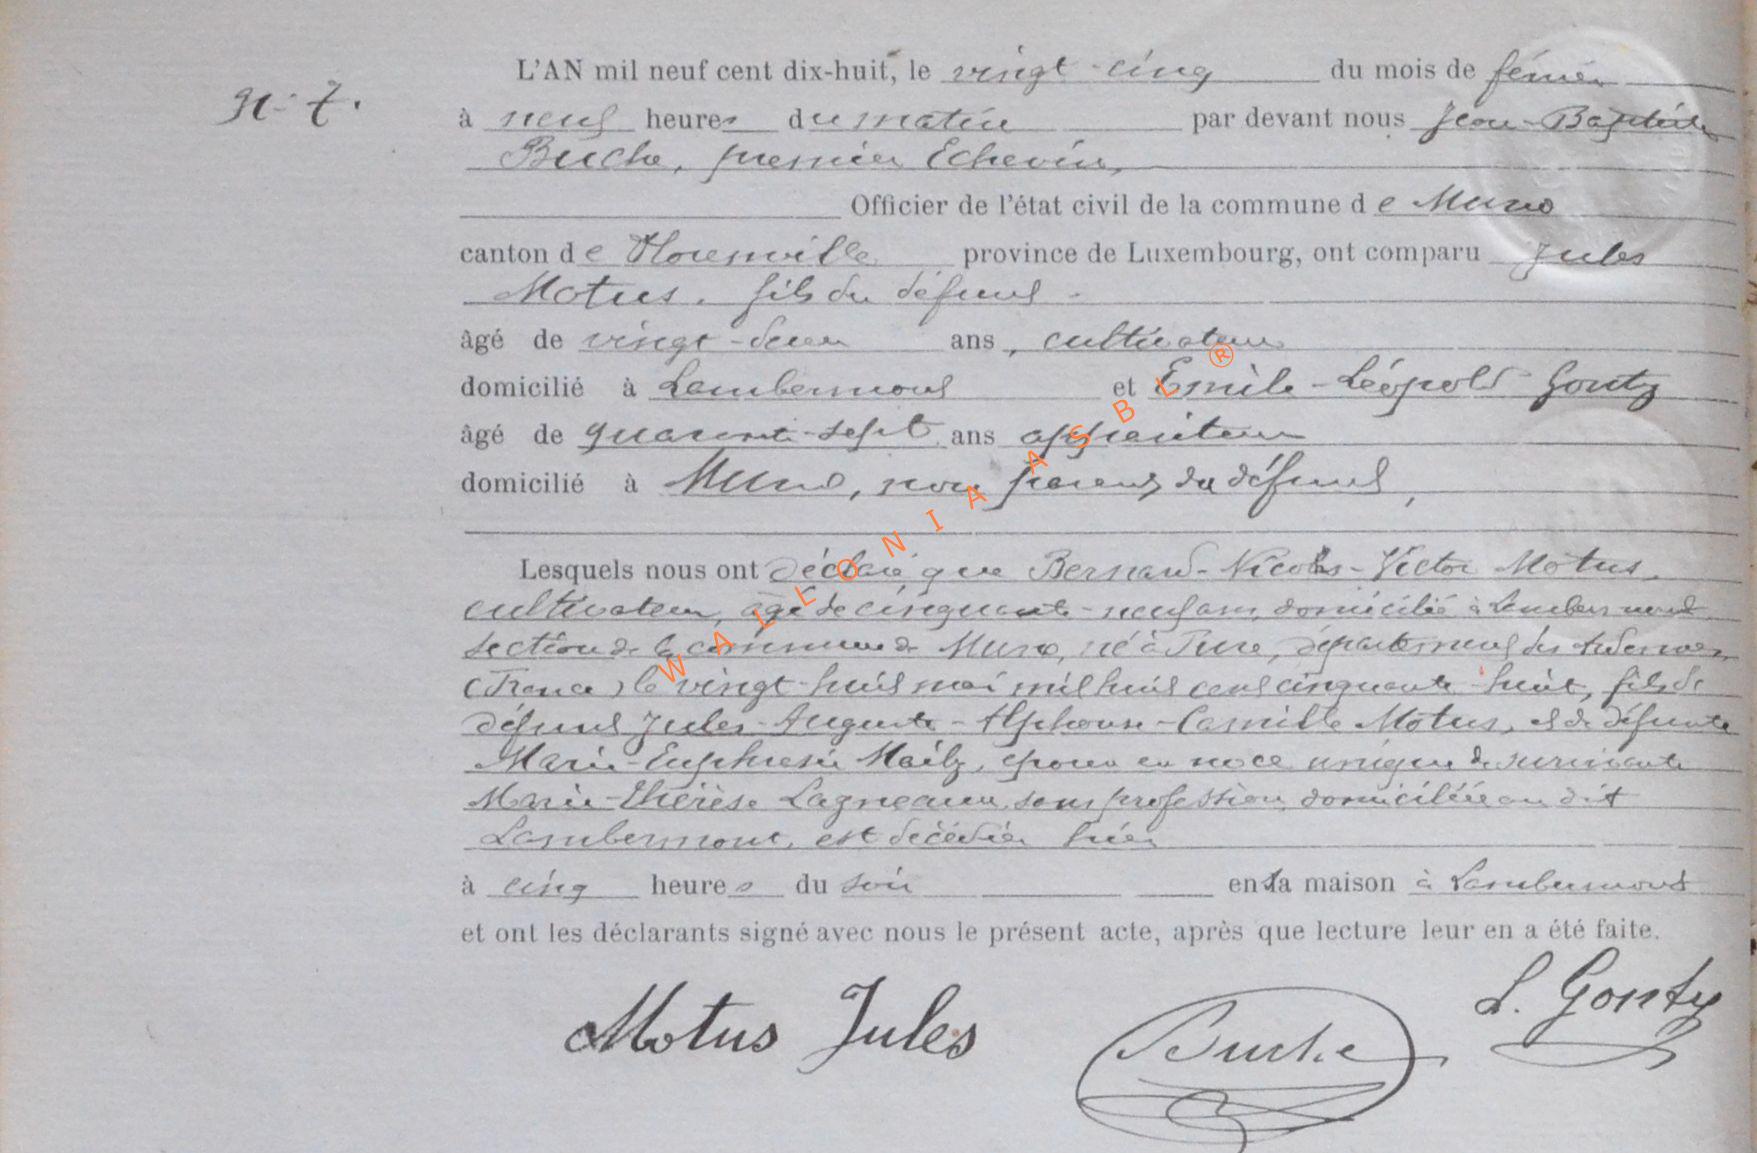 N° 7.
L'AN mil neuf cent dix-huit, le vingt-cinq du mois de février
à neuf heures du matin par devant nous Jean-Baptiste
Buche, premier Echevin,
Officier de l'état civil de la commune de Muno
canton de Florenville province de Luxembourg, ont comparu Jules
Motus, fils du défunt
âgé de vingt-deux ans, cultivateur
domicilié à Lambermont et Emile-Léopold Gonty
âgé de quarante-sept ans appariteur
domicilié à Muno, non parent du défunt,
Lesquels nous ont déclaré que Bernard-Nicolas-Victor Motus,
cultivateur, âgé de cinquante-neuf ans, domicilié à Lambermont
section de la commune de Muno, né à , département des Ardennes
(France) le vingt-huit mai mil huit cent cinquante-huit, fils de
défunt Jules-Auguste-Alphonse-Camille Motus, et de défunte
Marie-Euphrasie , époux en noce unique de survivante
Marie-Thérèse Lagneaux, sans profession, domiciliée au dit
Lambermont, est décédé hier
à cinq heures du soir en sa maison à Lambermont
et ont les déclarants signé avec nous le présent acte, après que lecture leur en a été faite.
Motus Jules
Buche
L. Gonty
WALLONIA ASBL ®